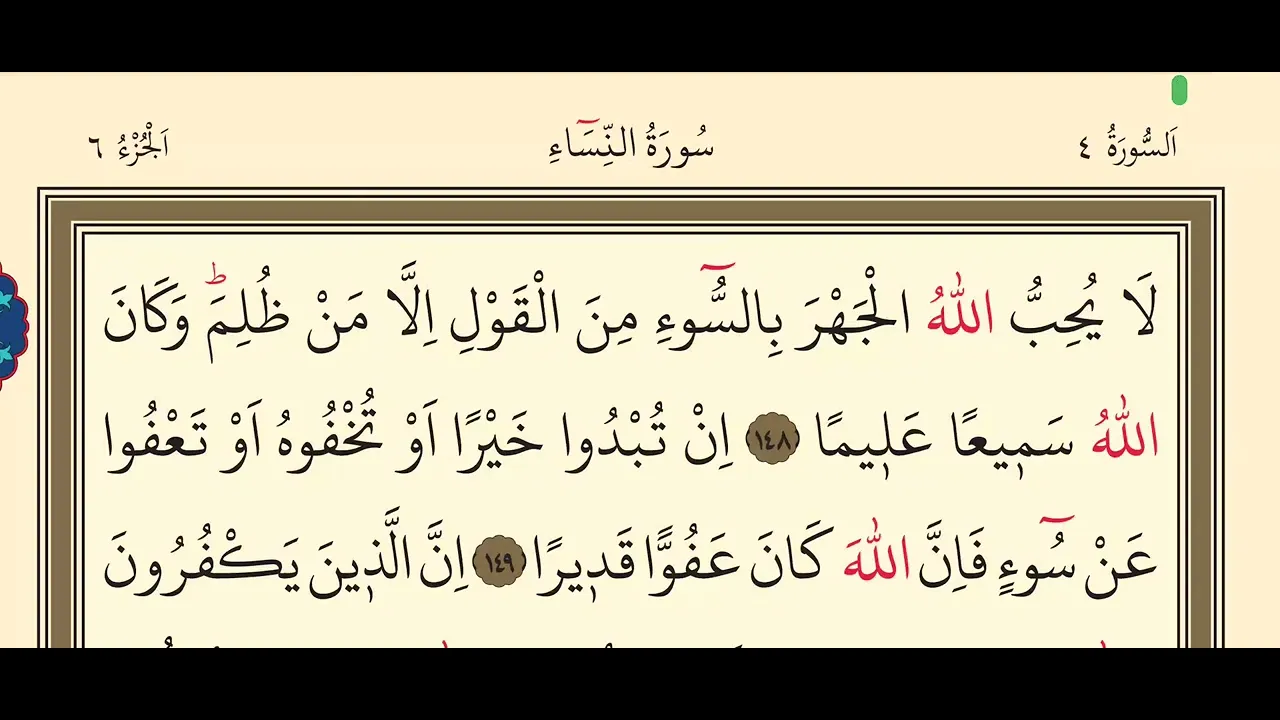 اَلسُّورَةُ ٤ سُورَةُ النِّسَٓاءِ اَلْجُزْءُ ٦
لَا يُحِبُّ اللّٰهُ الْجَهْرَ بِالسُّٓوءِ مِنَ الْقَوْلِ اِلَّا مَنْ ظُلِمَۜ وَكَانَ
اللّٰهُ سَم۪يعًا عَل۪يمًا ﴿١٤٨﴾ اِنْ تُبْدُوا خَيْرًا اَوْ تُخْفُوهُ اَوْ تَعْفُوا
عَنْ سُٓوءٍ فَاِنَّ اللّٰهَ كَانَ عَفُوًّا قَد۪يرًا ﴿١٤٩﴾ اِنَّ الَّذ۪ينَ يَكْفُرُونَ